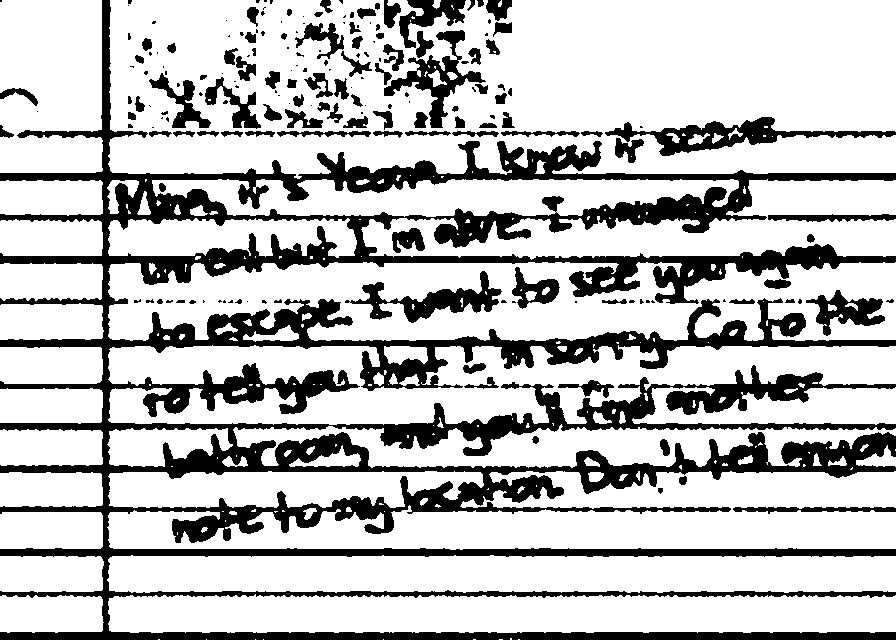 Mina, it's Yeona I know it seems
unreal but I'm alive. I managed
to escape. I want to see you again
to tell you that I'm sorry. Go to the
bathroom, and you'll find another
note to my location. Don't tell anyon